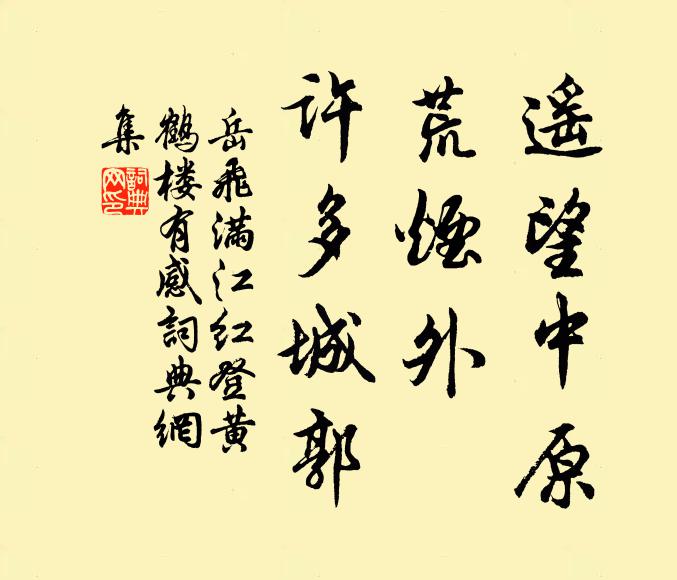 遥望中原
荒煙外
许多城郭
岳飛满江红登黄
鶴楼有感詞典網
集
詞典网印